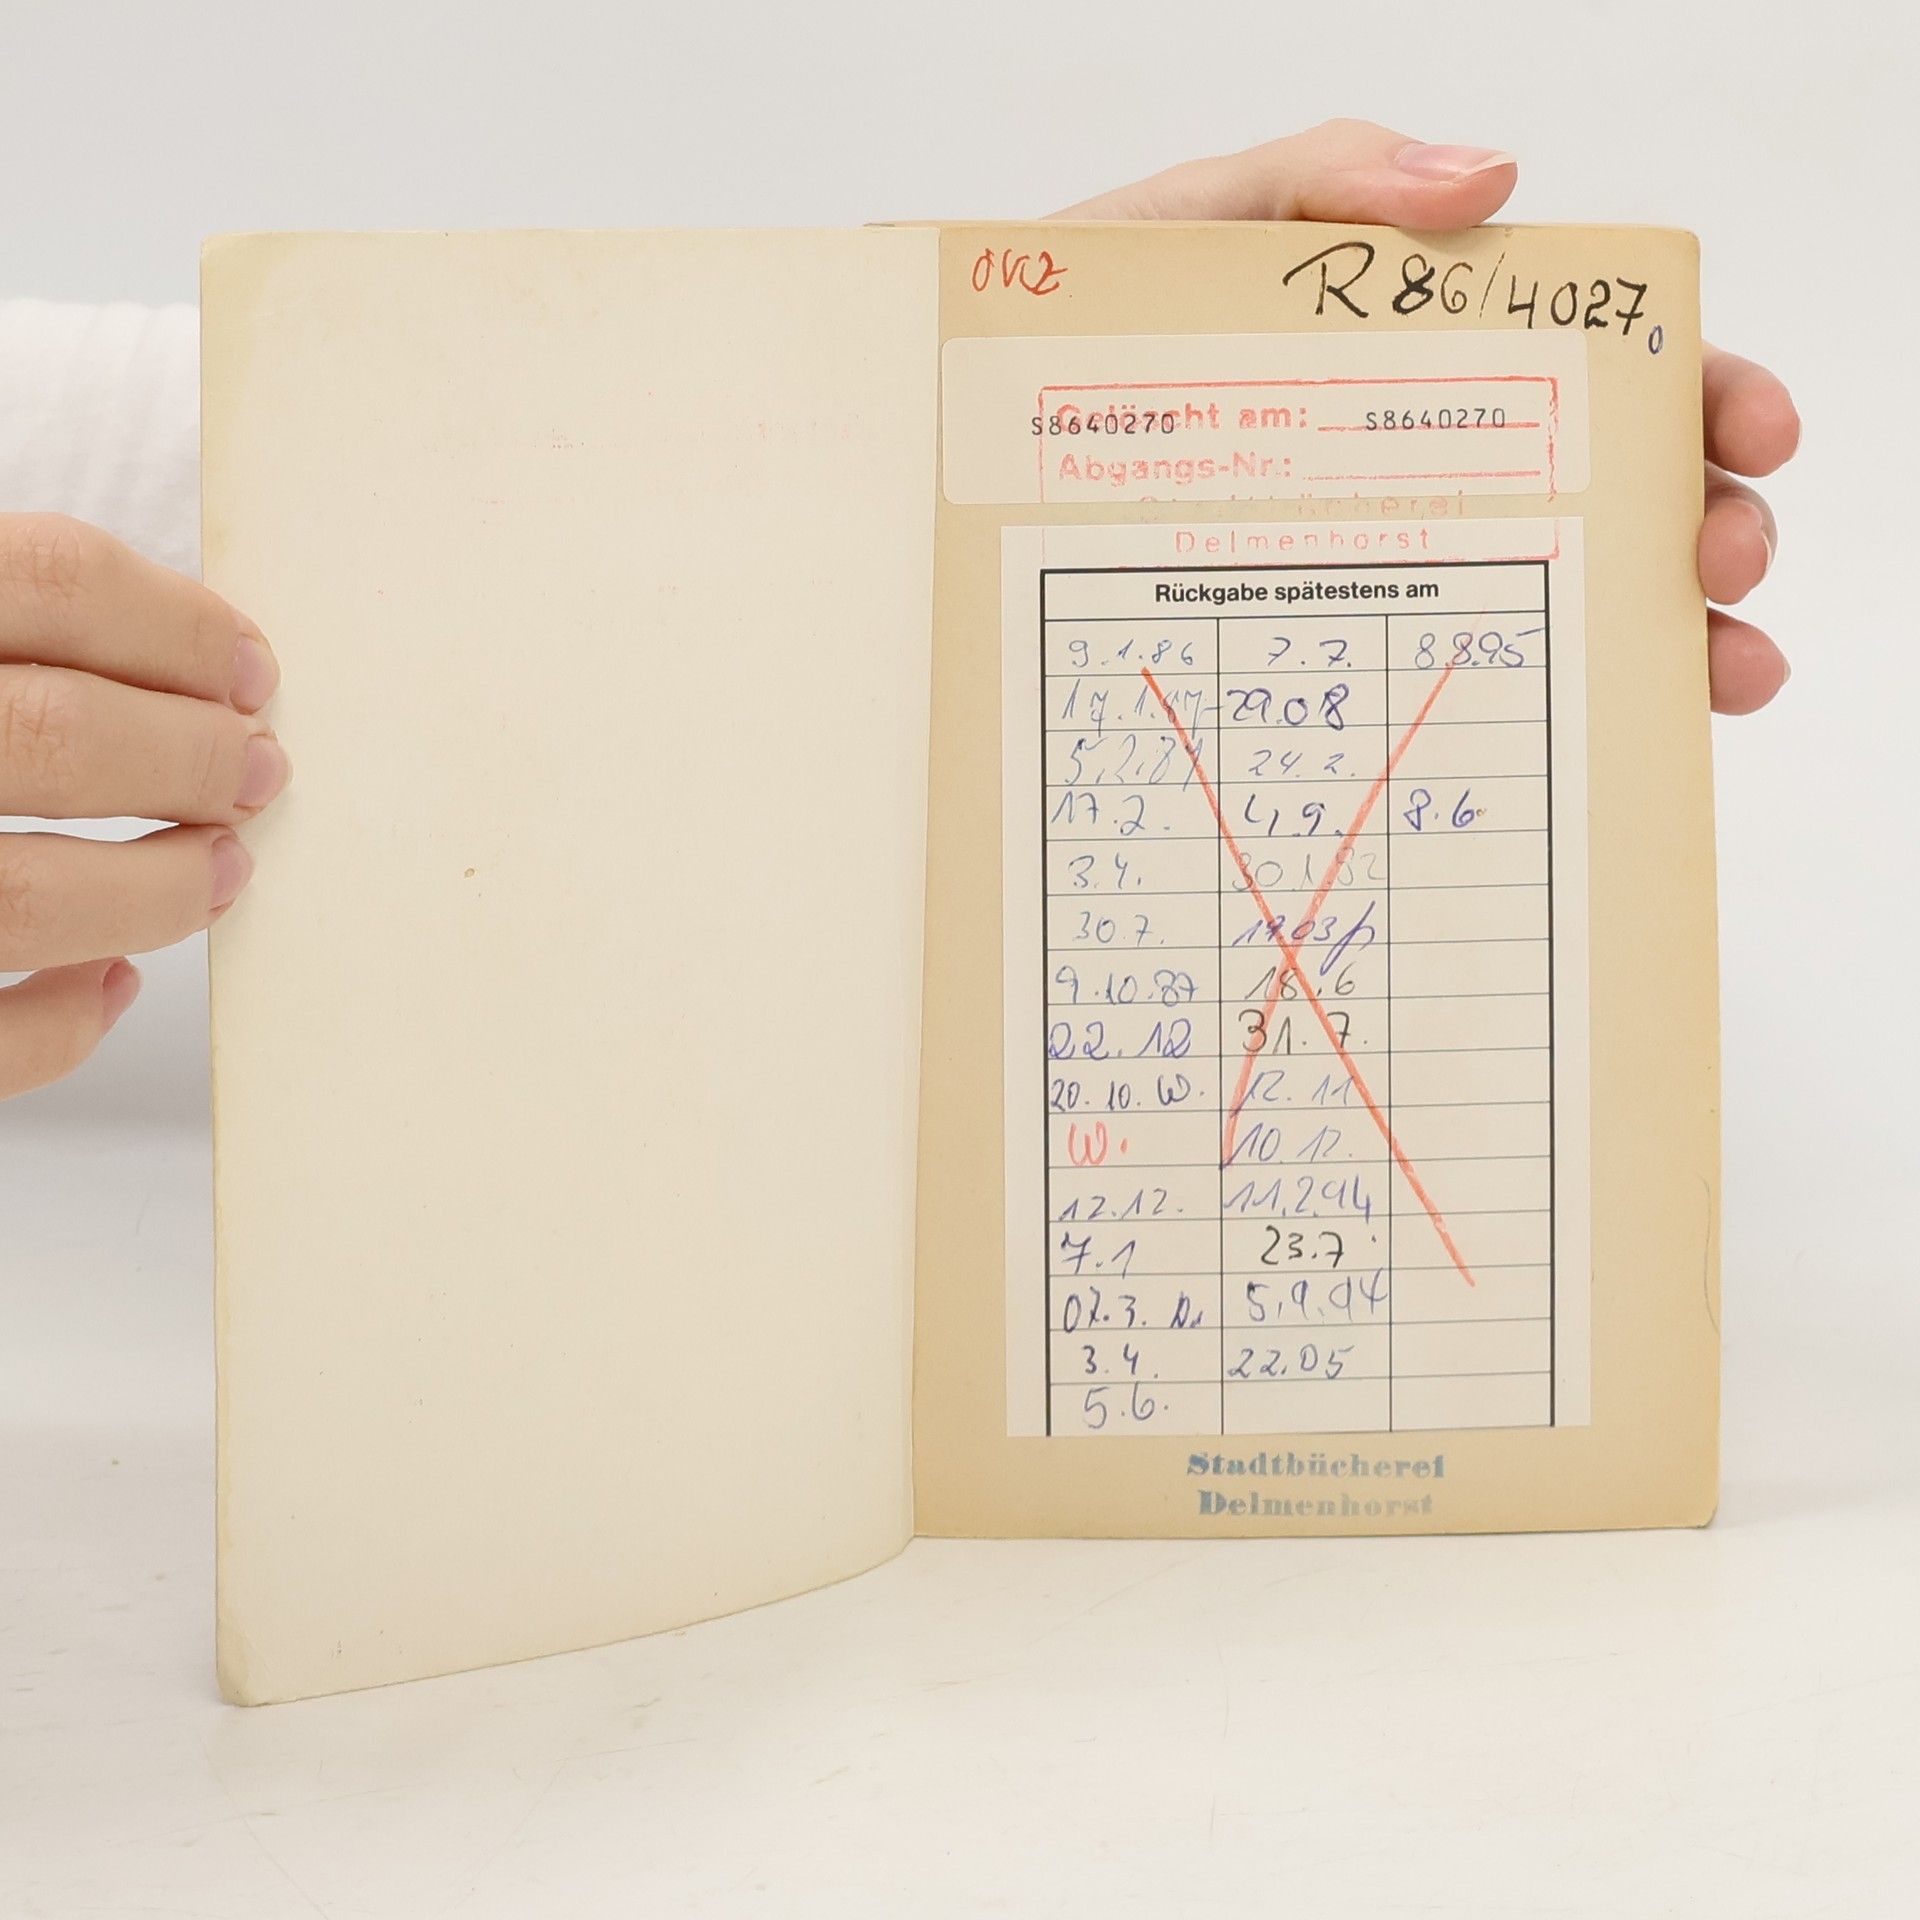 R 86/4027
0
Gelöscht am:
S8640270 S8640270
Abgangs-Nr.:
Stadtbücherei
Delmenhorst
Rückgabe spätestens am
9.1.86 7.7. 8.8.95
17.1.87 29.08
5.2.87 24.2.
17.2. 4.9. 8.6.
3.4. 30.1.92
30.7. 17.03
9.10.87 18.6
22.12 31.7.
20.10. W. 12.11
W. 10.12.
12.12. 11.2.94
7.1 23.7
07.3. 5.9.94
3.4. 22.05
5.6.
Stadtbücherei
Delmenhorst